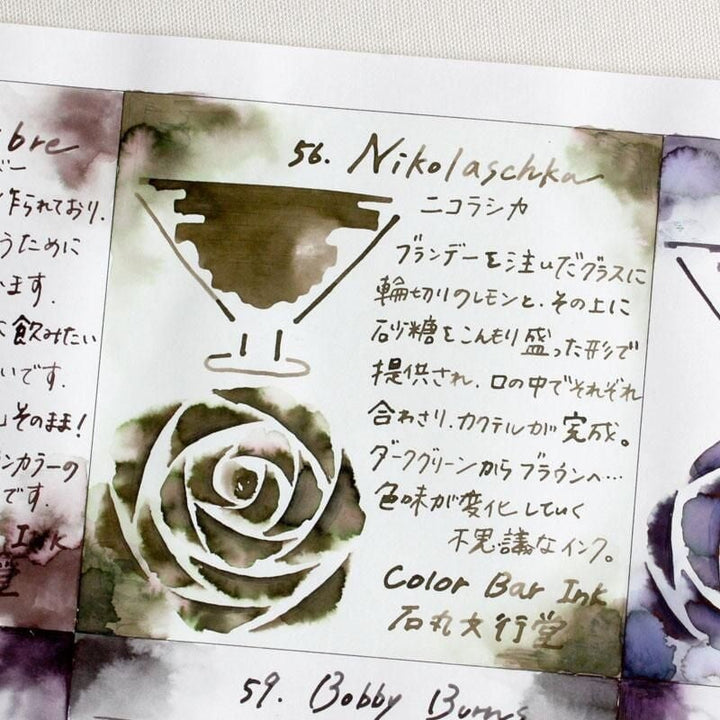 bre
バー
作られており.
うために
います.
飲みたい
いです.
そのまま!
ンカラーの
です.
Ink
堂
56. Nikolaschka
ニコラシカ
ブランデーを注いだグラスに
輪切りのレモンと、その上に
砂糖をこんもり盛った形で
提供され、口の中でそれぞれ
合わさり、カクテルが完成。
ダークグリーンからブラウンへ…
色味が変化していく
不思議なインク。
Color Bar Ink
石丸文行堂
59. Bobby Burns